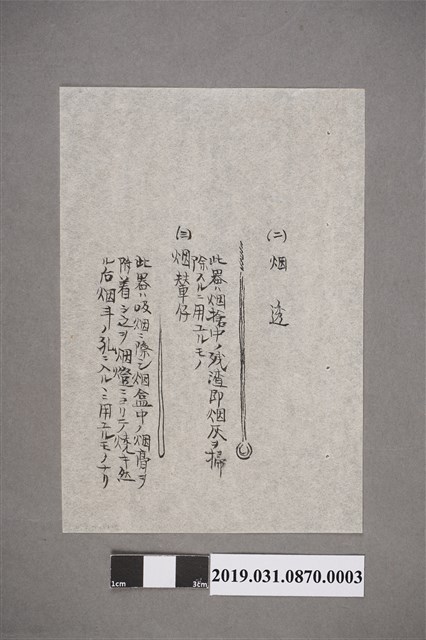 (二) 烟透
此器ハ烟捨中ノ残渣即烟灰ヲ掃
除スルニ用ユルモノ
(三) 烟 仔
此器ハ吸烟ニ際シ烟盒中ノ烟膏ヲ
附着シ之ヲ烟燈ニヨリテ焼キ然
ル后烟斗ノ孔ニ入ルヽニ用ユルモノナリ
1cm
3cm
2019.031.0870.0003